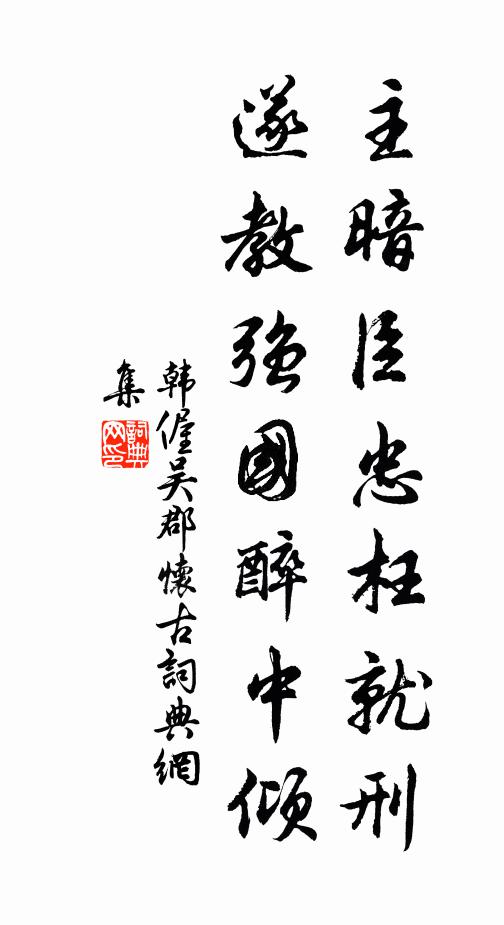 主暗臣忠枉就刑
遂教強國醉中傾
韩偓吴郡懷古詞典網
集
詞典
网印